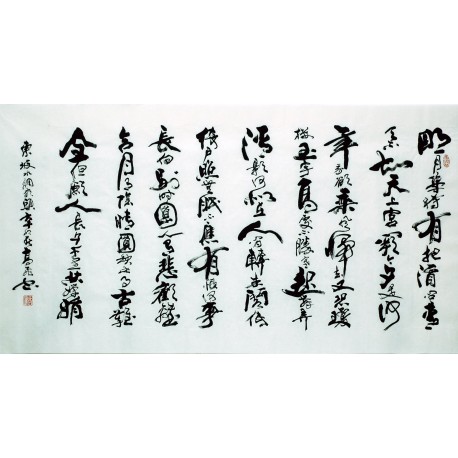 明月幾時有把酒问青
天不知天上宫闕今夕是何
年我欲乘風歸去又恐瓊
樓玉宇高處不勝寒起舞弄
清影何似在人間轉朱閣低
綺户照無眠不應有恨何事
長向别時圓人有悲歡離
合月有陰晴圓缺此事古難
全但願人長久千里共嬋娟
東坡水调歌頭